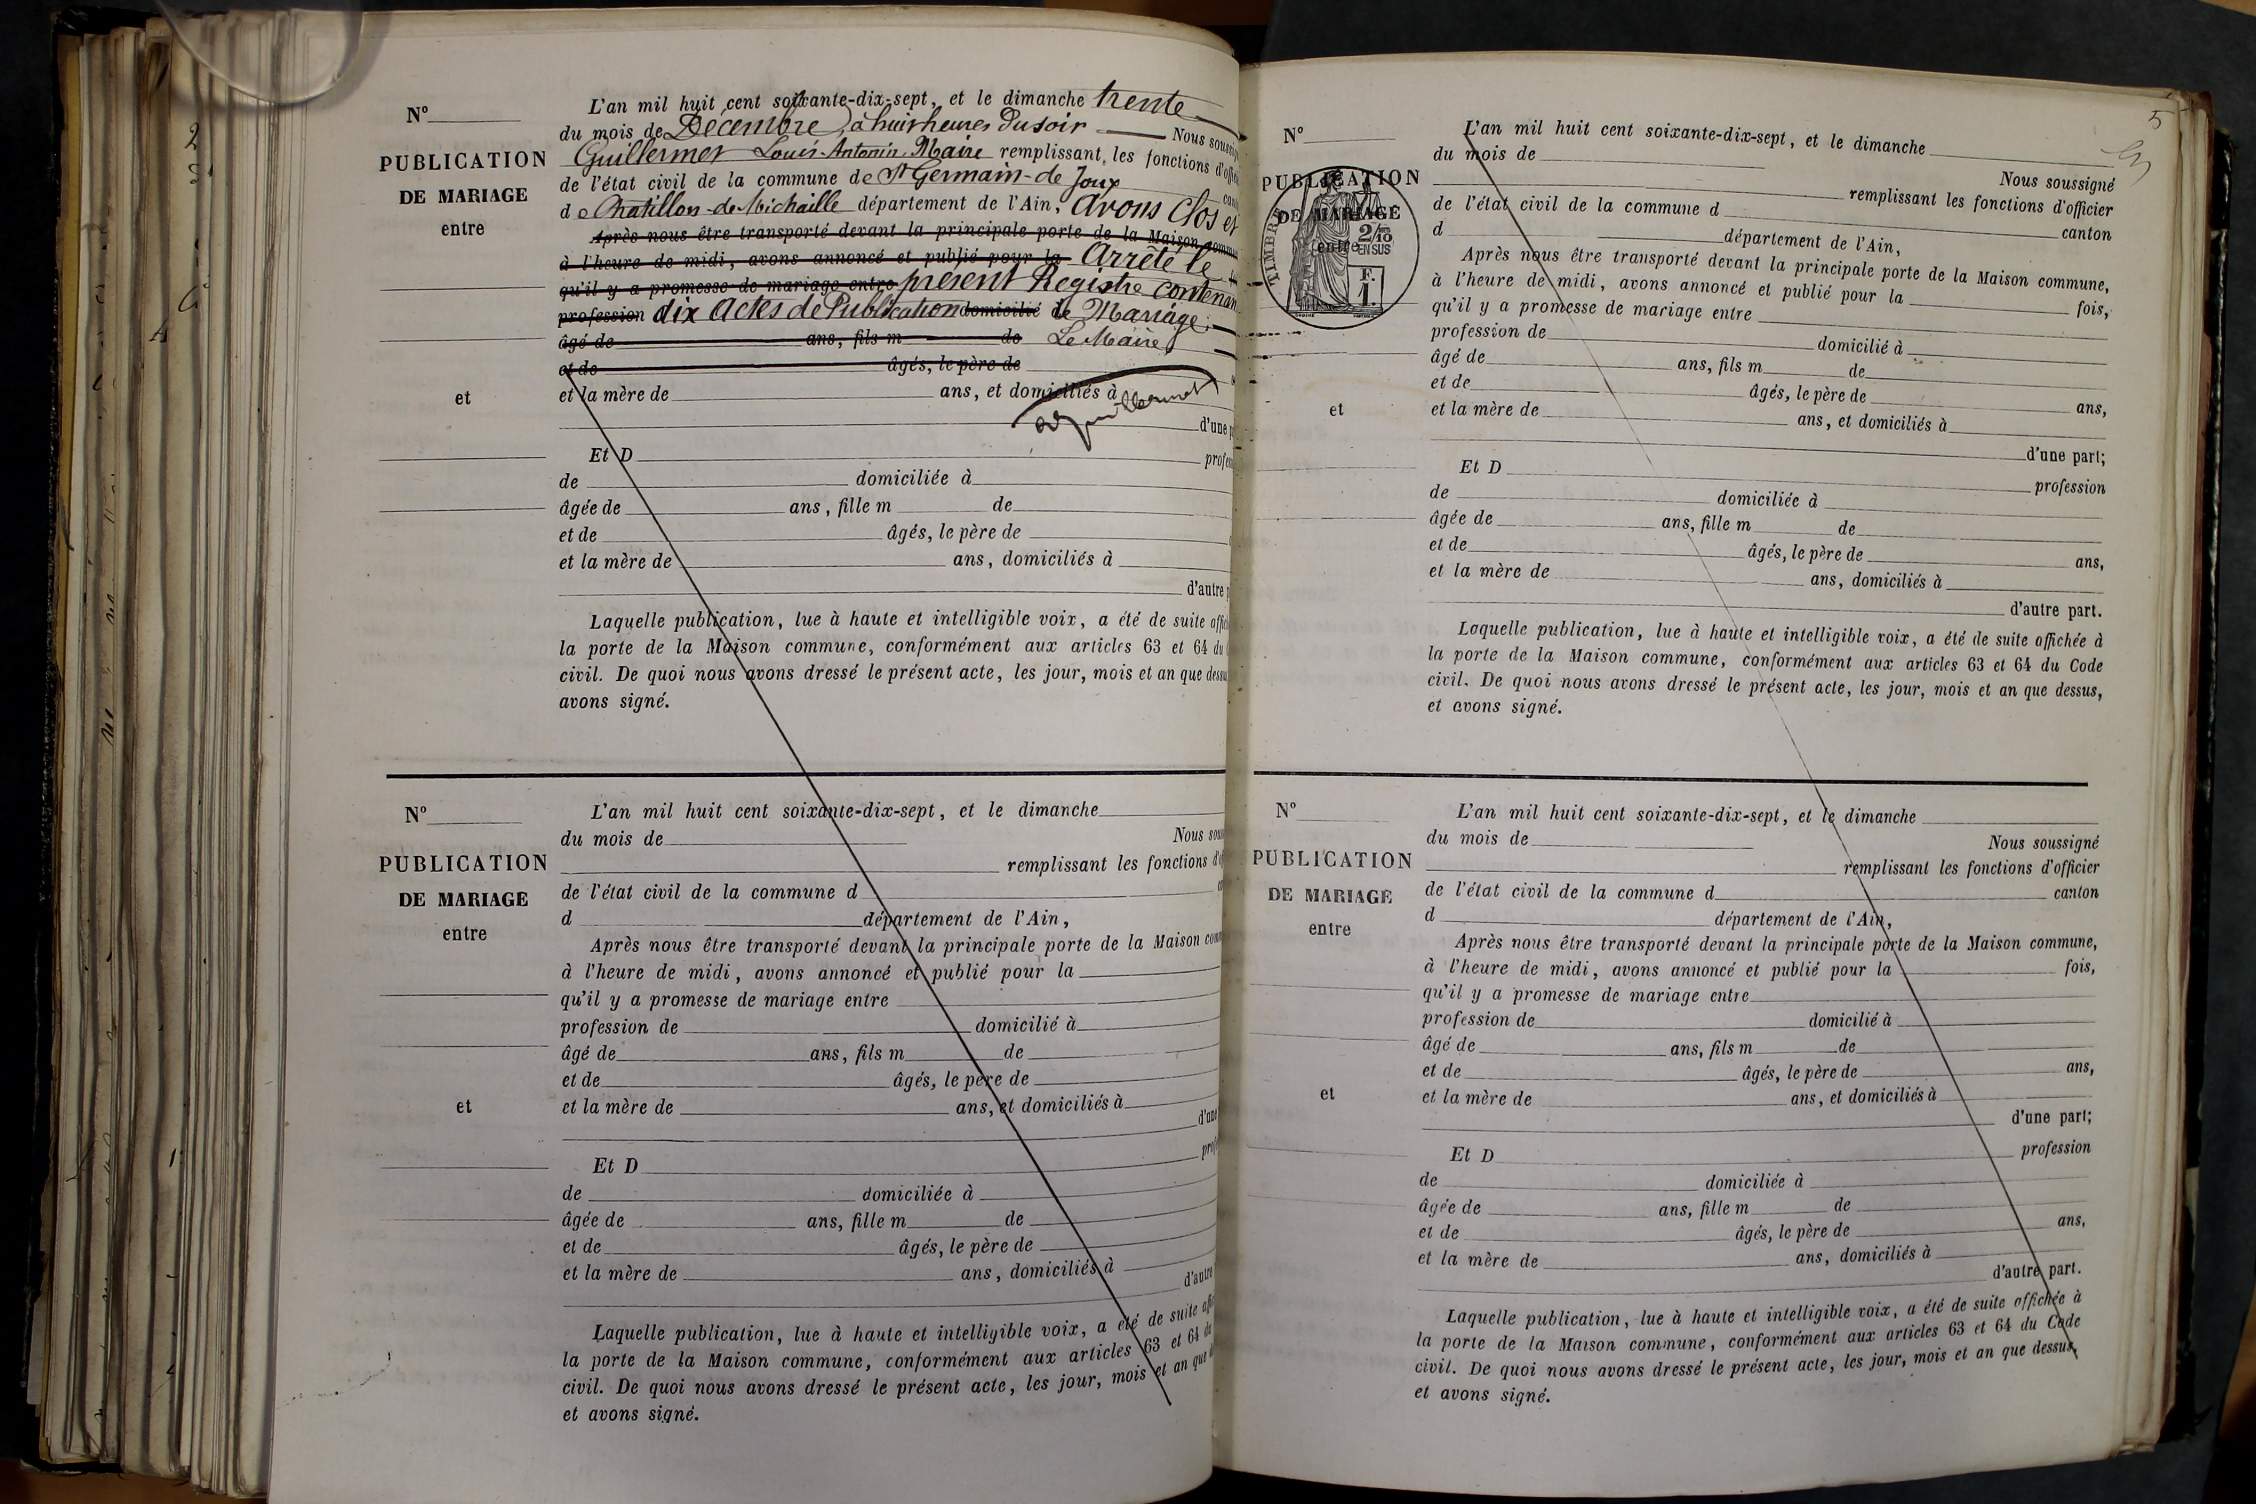 N°
PUBLICATION
DE MARIAGE
entre
et
L'an mil huit cent soixante-dix-sept, et le dimanche trente
du mois de Décembre, à huit heures du soir Nous
Guillermet Louis-Antonin, Maire remplissant les fonctions
de l'état civil de la commune de St Germain-de Joux
de Chatillon-de-Michaille département de l'Ain, avons Clos et
Après nous être transporté devant la principale porte de la Maison
à l'heure de midi, avons annoncé et publié pour la Arrêté le
qu'il y a promesse de mariage entre présent Registre contenan
profession dix Actes de Publication domicilié de Mariage.
âgé de ans, fils m de Le Maire
et de âgés, le père de
et la mère de ans, et domiciliés à
aguillermet
d'une
Et D
de domiciliée à
âgée de ans, fille m de
et de âgés, le père de
et la mère de ans, domiciliés à
d'autre
Laquelle publication, lue à haute et intelligible voix, a été de suite
la porte de la Maison commune, conformément aux articles 63 et 64 du
civil. De quoi nous avons dressé le présent acte, les jour, mois et an que
avons signé.
N°
PUBLICATION
DE MARIAGE
entre
et
L'an mil huit cent soixante-dix-sept, et le dimanche
du mois de Nous
remplissant les fonctions
de l'état civil de la commune d
d département de l'Ain,
Après nous être transporté devant la principale porte de la Maison
à l'heure de midi, avons annoncé et publié pour la
qu'il y a promesse de mariage entre
profession de domicilié à
âgé de ans, fils m de
et de âgés, le père de
et la mère de ans, et domiciliés à
d'une
Et D
de domiciliée à
âgée de ans, fille m de
et de âgés, le père de
et la mère de ans, domiciliés à
d'autre
Laquelle publication, lue à haute et intelligible voix, a été de suite
la porte de la Maison commune, conformément aux articles 63 et 64 du
civil. De quoi nous avons dressé le présent acte, les jour, mois et an que
et avons signé.
5
N°
PUBLICATION
DE MARIAGE
entre
et
TIMBRE
2/10
EN SUS
F.
1.
L'an mil huit cent soixante-dix-sept, et le dimanche
du mois de Nous soussigné
remplissant les fonctions d'officier
de l'état civil de la commune d canton
d département de l'Ain,
Après nous être transporté devant la principale porte de la Maison commune,
à l'heure de midi, avons annoncé et publié pour la fois,
qu'il y a promesse de mariage entre
profession de domicilié à
âgé de ans, fils m de
et de âgés, le père de ans,
et la mère de ans, et domiciliés à
d'une part;
Et D profession
de domiciliée à
âgée de ans, fille m de
et de âgés, le père de ans,
et la mère de ans, domiciliés à
d'autre part.
Laquelle publication, lue à haute et intelligible voix, a été de suite affichée à
la porte de la Maison commune, conformément aux articles 63 et 64 du Code
civil. De quoi nous avons dressé le présent acte, les jour, mois et an que dessus,
et avons signé.
N°
PUBLICATION
DE MARIAGE
entre
et
L'an mil huit cent soixante-dix-sept, et le dimanche
du mois de Nous soussigné
remplissant les fonctions d'officier
de l'état civil de la commune d canton
d département de l'Ain,
Après nous être transporté devant la principale porte de la Maison commune,
à l'heure de midi, avons annoncé et publié pour la fois,
qu'il y a promesse de mariage entre
profession de domicilié à
âgé de ans, fils m de
et de âgés, le père de ans,
et la mère de ans, et domiciliés à
d'une part;
Et D profession
de domiciliée à
âgée de ans, fille m de
et de âgés, le père de ans,
et la mère de ans, domiciliés à
d'autre part.
Laquelle publication, lue à haute et intelligible voix, a été de suite affichée à
la porte de la Maison commune, conformément aux articles 63 et 64 du Code
civil. De quoi nous avons dressé le présent acte, les jour, mois et an que dessus,
et avons signé.